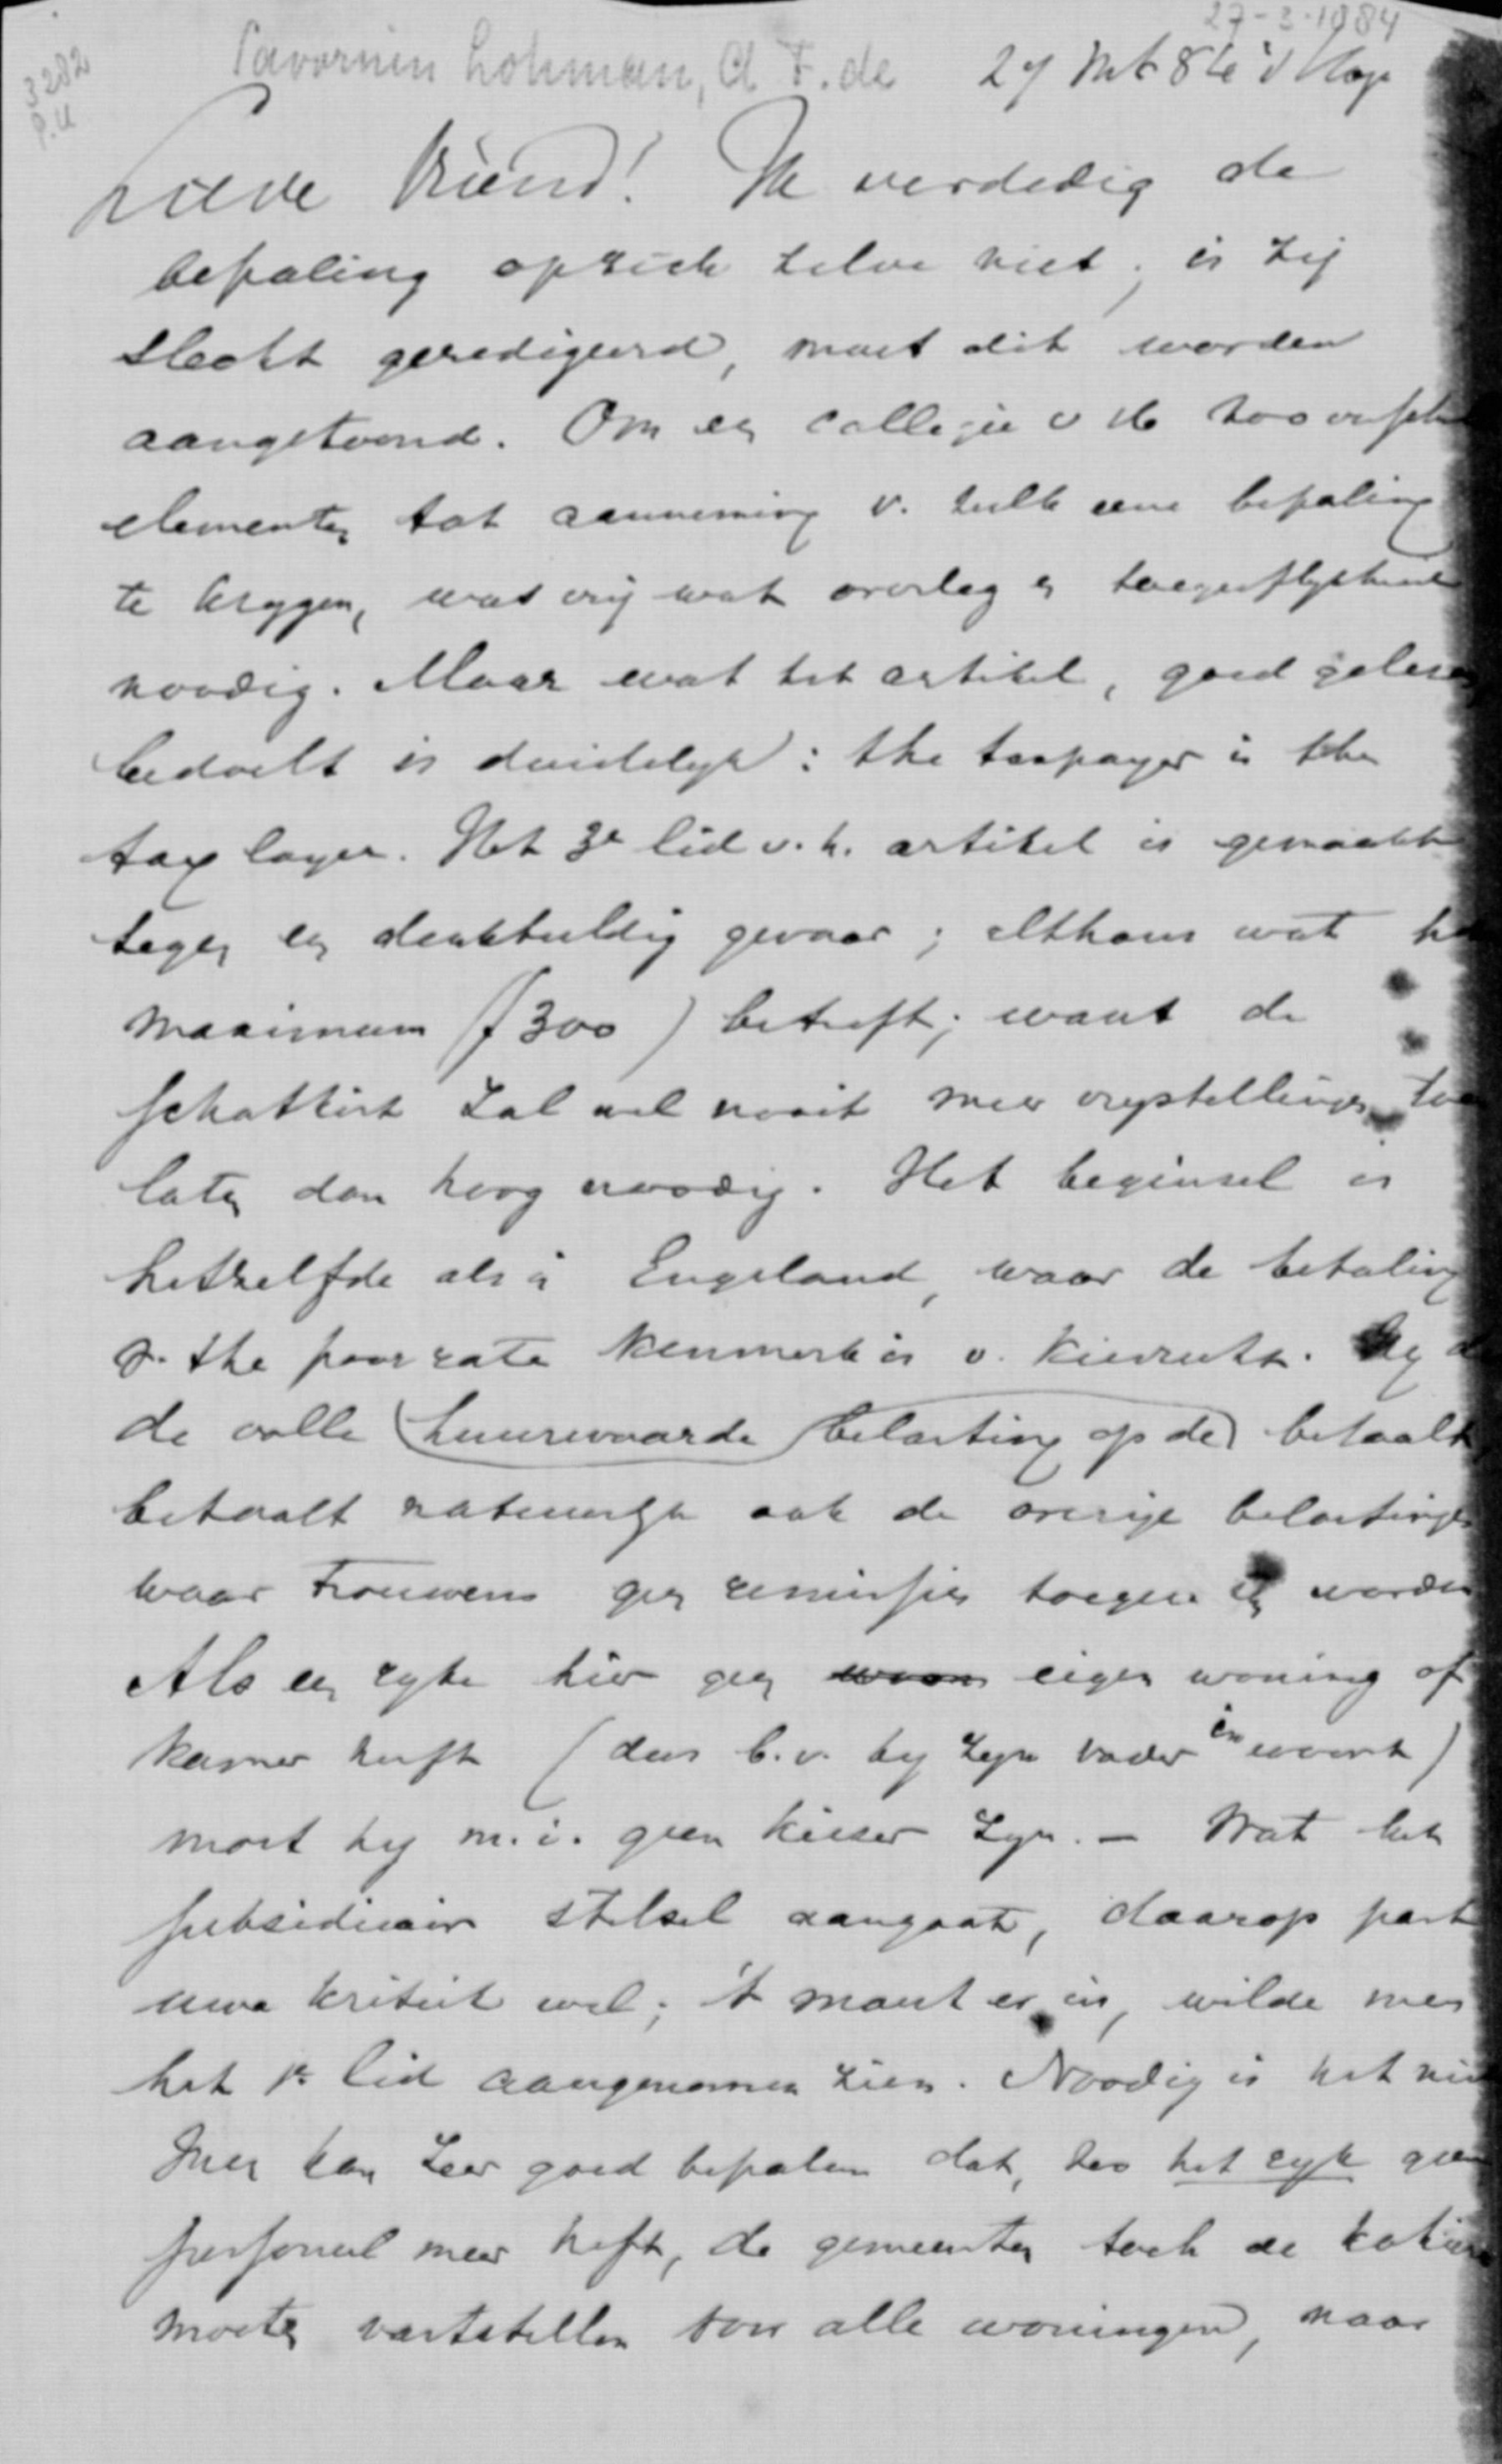 27-3-1884
3282
P.U
Savornin Lohman, A F. de 27 Mrt 84 's Hage
Lieve Vriend! Ik verdedig de
bepaling op zich zelve niet; is zij
slecht geredigeerd, moet dit worden
aangetoond. Om een collegie v
elementen tot aanneming v. zulk eene bepaling
te krygen, was vrij wat overleg en toegeeflykheid
noodig. Maar wat het artikel, goed gelezen
bedoelt is duidelyk: the taxpayer is the
tax layer. Het 3e lid v. h. artikel is gemaakt
tegen een denkbeeldig gevaar; althans wat het
maximum (f 300) betreft; want de
schatkist zal wel nooit meer vrystellingen toe
laten dan hoog noodig. Het beginsel is
hetzelfde als in Engeland, waar de betaling
v. the poor rate kenmerk is v. kiesrecht.
de volle (huurwaarde belasting op de) betaalt
betaalt natuurlyk ook de overige belastingen
waar trouwens geen remissies worden
Als een ryke hier geen woon eigen woning of
kamer heeft (dus b.v. by zyn vader inwoont)
moet hy m.i. geen kiezer zyn. — Wat het
subsidiair stelsel aangaat, daarop past
uwe kritiek wel; 't moest er in, wilde men
het 1e lid aangenomen zien. Noodig is het niet
Men kan zeer goed bepalen dat, zoo het ryk geen
personeel meer heft, de gemeenten toch de
moeten vaststellen voor alle woningen, naar